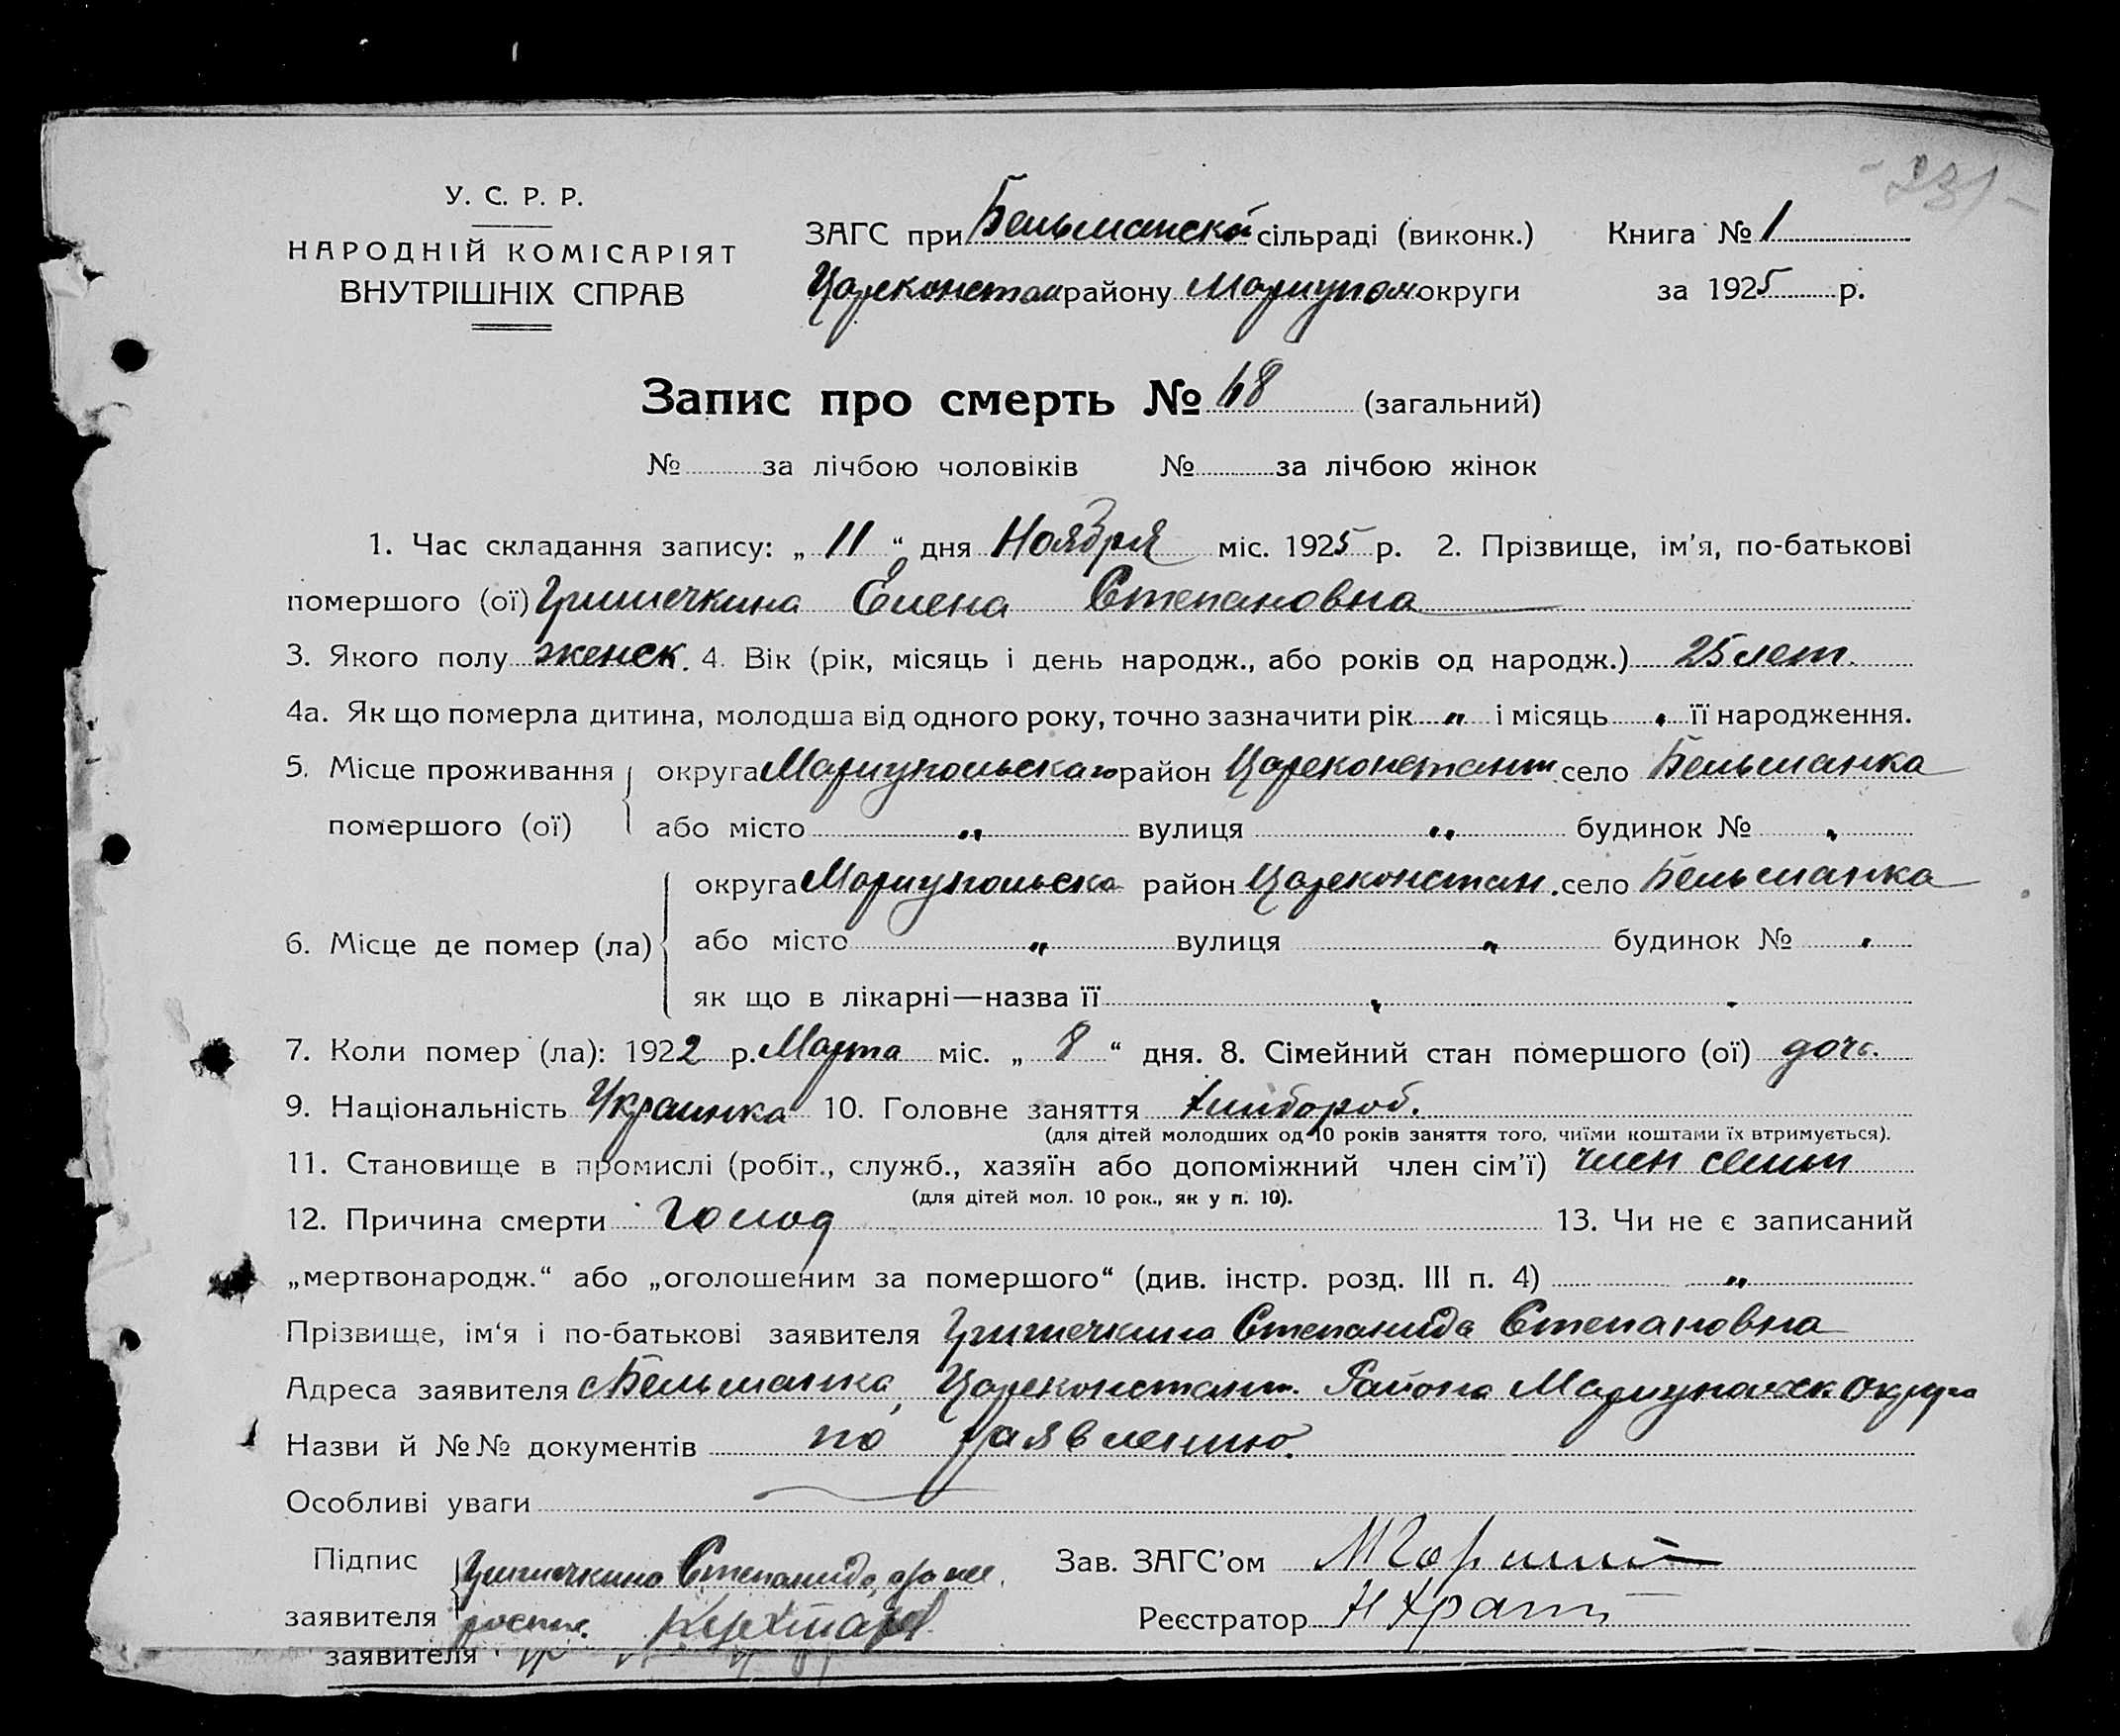 - 231 -
У. С. Р. Р.
НАРОДНІЙ КОМІСАРІЯТ
ВНУТРІШНІХ СПРАВ
ЗАГС при Бельманской сільраді (виконк.) Книга № 1
Цареконстан району Мариупол округи за 1925 р.
Запис про смерть № 48 (загальний)
№ за лічбою чоловіків № за лічбою жінок
1. Час складання запису: „ 11 “ дня Ноября міс. 1925 р. 2. Прізвище, ім’я, по-батькові
помершого (ої) Гришечкина Елена Степановна
3. Якого полу женск. 4. Вік (рік, місяць і день народж., або років од народж.) 25 лет.
4а. Як що померла дитина, молодша від одного року, точно зазначити рік „ і місяць „ її народження.
5. Місце проживання округа Мариупольскаго район Цареконстант. село Бельманка
помершого (ої) або місто „ вулиця „ будинок № „
округа Мариупольска район Цареконстан. село Бельманка
6. Місце де помер (ла) або місто „ вулиця „ будинок № „
як що в лікарні—назва її „ „
7. Коли помер (ла): 1922 р. Марта міс. „ 8 “ дня. 8. Сімейний стан помершого (ої) дочь.
9. Національність Украинка 10. Головне заняття хлибороб.
(для дітей молодших од 10 років заняття того, чиїми коштами їх втримується).
11. Становище в промислі (робіт., служб., хазяїн або допоміжний член сім’ї) член семьи
(для дітей мол. 10 рок., як у п. 10).
12. Причина смерти голод 13. Чи не є записаний
„мертвонародж.“ або „оголошеним за помершого“ (див. інстр. розд. III п. 4) „
Прізвище, ім‘я і по-батькові заявителя Гришечкина Степанида Степановна
Адреса заявителя с Бельманка, Цареконстант. Района Мариупольск округа
Назви й №№ документів по заявлению.
Особливі уваги
Підпис Гришечкина Степанида Зав. ЗАГС’ом
заявителя Реєстратор
заявителя